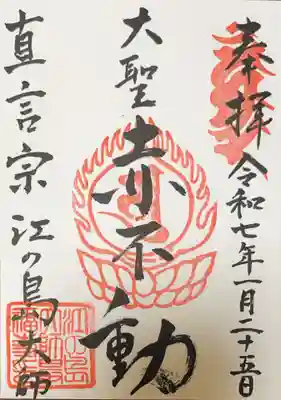 奉拝 令和七年一月二十五日
大聖赤不動
真言宗 江の島大師